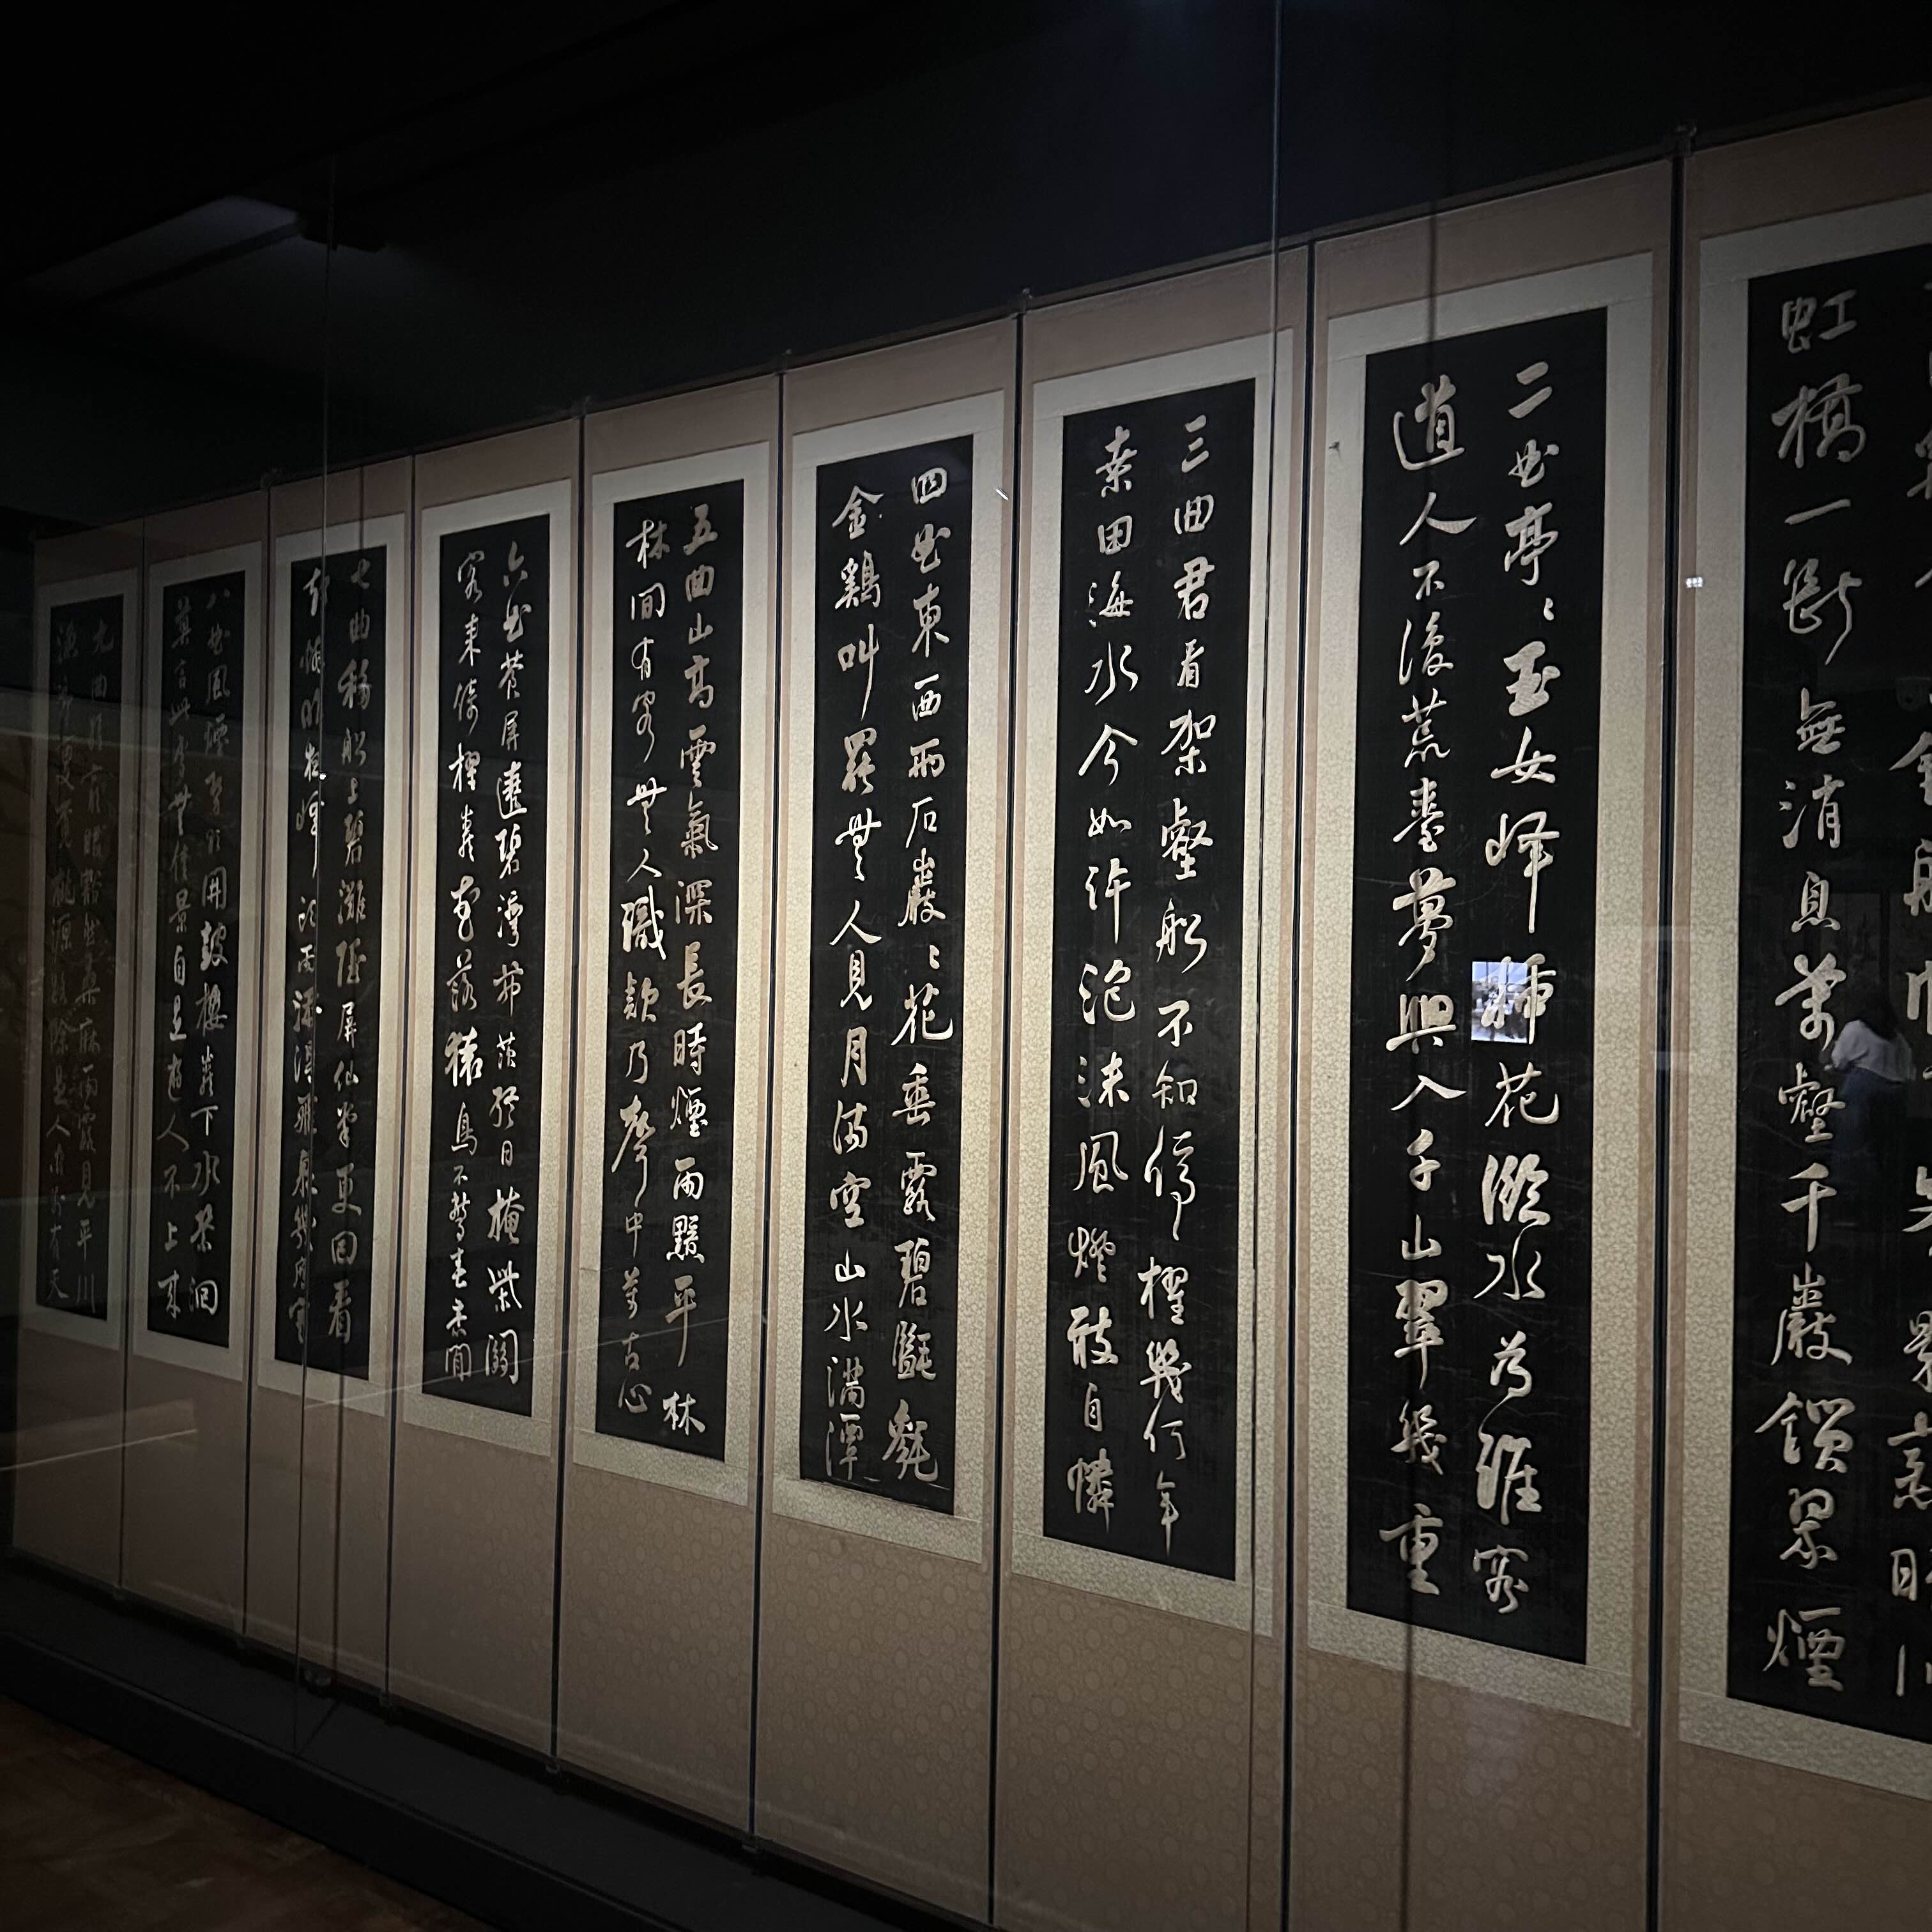 虹橋一斷無消息萬壑千巖鎖翠煙
二曲亭〻玉女峰插花臨水為誰容
道人不復荒臺夢興入千山翠幾重
三曲君看架壑船不知停櫂幾何年
桑田海水今如許泡沫風燈敢自憐
四曲東西兩石巖〻花垂露碧㲯毿
金鷄叫罷無人見月滿空山水滿潭
五曲山高雲氣深長時煙雨黯平林
林間有客無人識欸乃聲中萬古心
六曲蒼屏遶碧灣茆茨終日掩柴關
客來倚櫂巖花落猿鳥不驚春意閒
七曲移船上碧灘隱屏仙掌更回看
却憐昨夜峰頭雨添得飛泉幾道寒
八曲風煙勢欲開鼓樓巖下水縈洄
莫言此處無佳景自是遊人不上來
九曲將窮眼豁然桑麻雨露見平川
漁郎更覓桃源路除是人間別有天